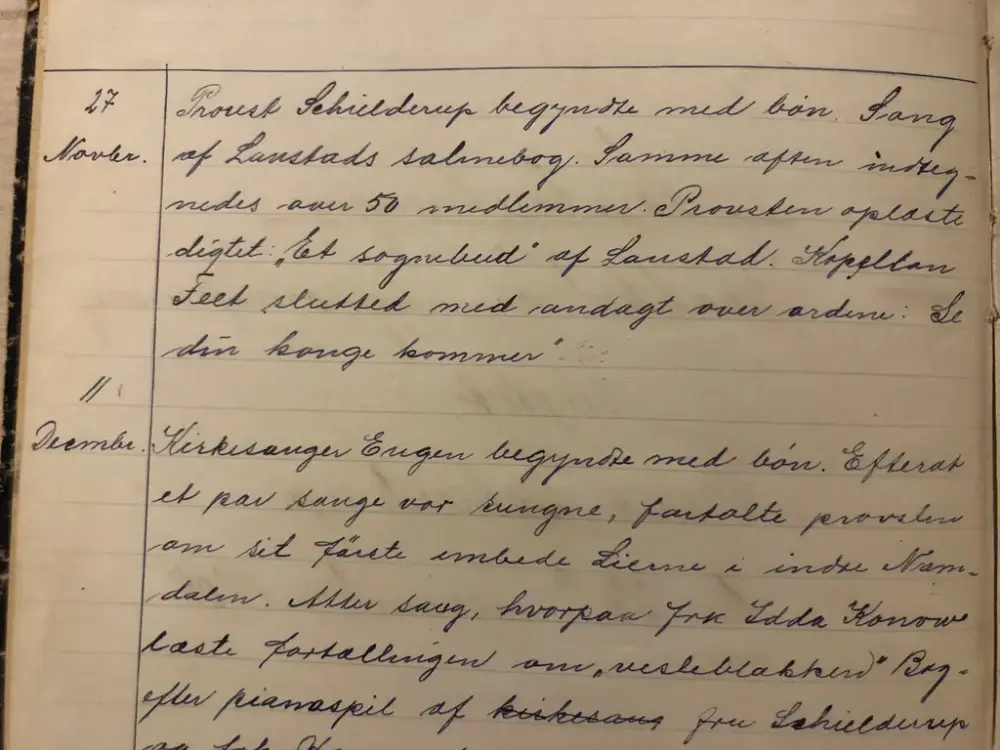 27 Provst Schielderup begyndte med bøn. Sang
Novbr. af Lanstads salmebog. Samme aften indteg-
nedes over 50 medlemmer. Provsten oplæste
digtet: „Et sognebud" af Lanstad. Kapellan
slutted med andagt over ordene: Se
din konge kommer"
11
Decmbr. Kirkesanger Engen begyndte med bøn. Efterat
et par sange var sungne, fortalte provsten
om sit første embede Lierne i indre Nam-
dalen. Atter sang, hvorpaa frk Idda Konow
læste fortællingen om „vesleblakken" Bag-
efter pianospil af kirkesang fru Schielderup